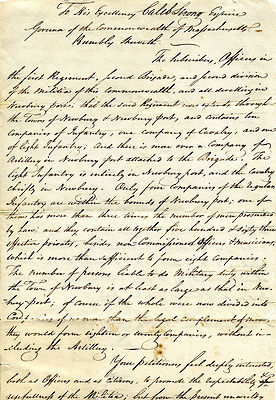 To His Excellency Caleb Strong Esquire
Governor of the Commonwealth of Massachusetts
Humbly Sheweth
The Subscribers, Officers in
the first Regiment, second Brigade, and second division
of the Militia of this Commonwealth, and all dwelling in
Newbury port; that the said Regiment now extends through
the Towns of Newbury & Newbury port, and contains ten
companies of Infantry, one company of Cavalry, and one
of light Infantry, And there is more over a Company of
Artillery in Newbury port attached to the Brigade. The
light Infantry is entirely in Newbury port, and the Cavalry
chiefly in Newbury. Only four Companies of the regular
Infantry are within the bounds of Newbury port; one of
them has more than three times the number of men prescribed
by law; and they contain all together five hundred & sixty three
effective privates, besides non Commissioned Officers & musicians,
which is more than sufficient to form eight companies.
The number of persons liable to do Military duty within
the Town of Newbury is at least as large as that in New-
bury port, of course if the whole were now divided into
Companies of no more than the legal complement of men,
they would form eighteen or twenty Companies, without in-
cluding the Artillery.
Your petitioners feel deeply interested,
both as Officers and as citizens, to promote the respectability &
usefulness of the Militia; but from the present unwieldy